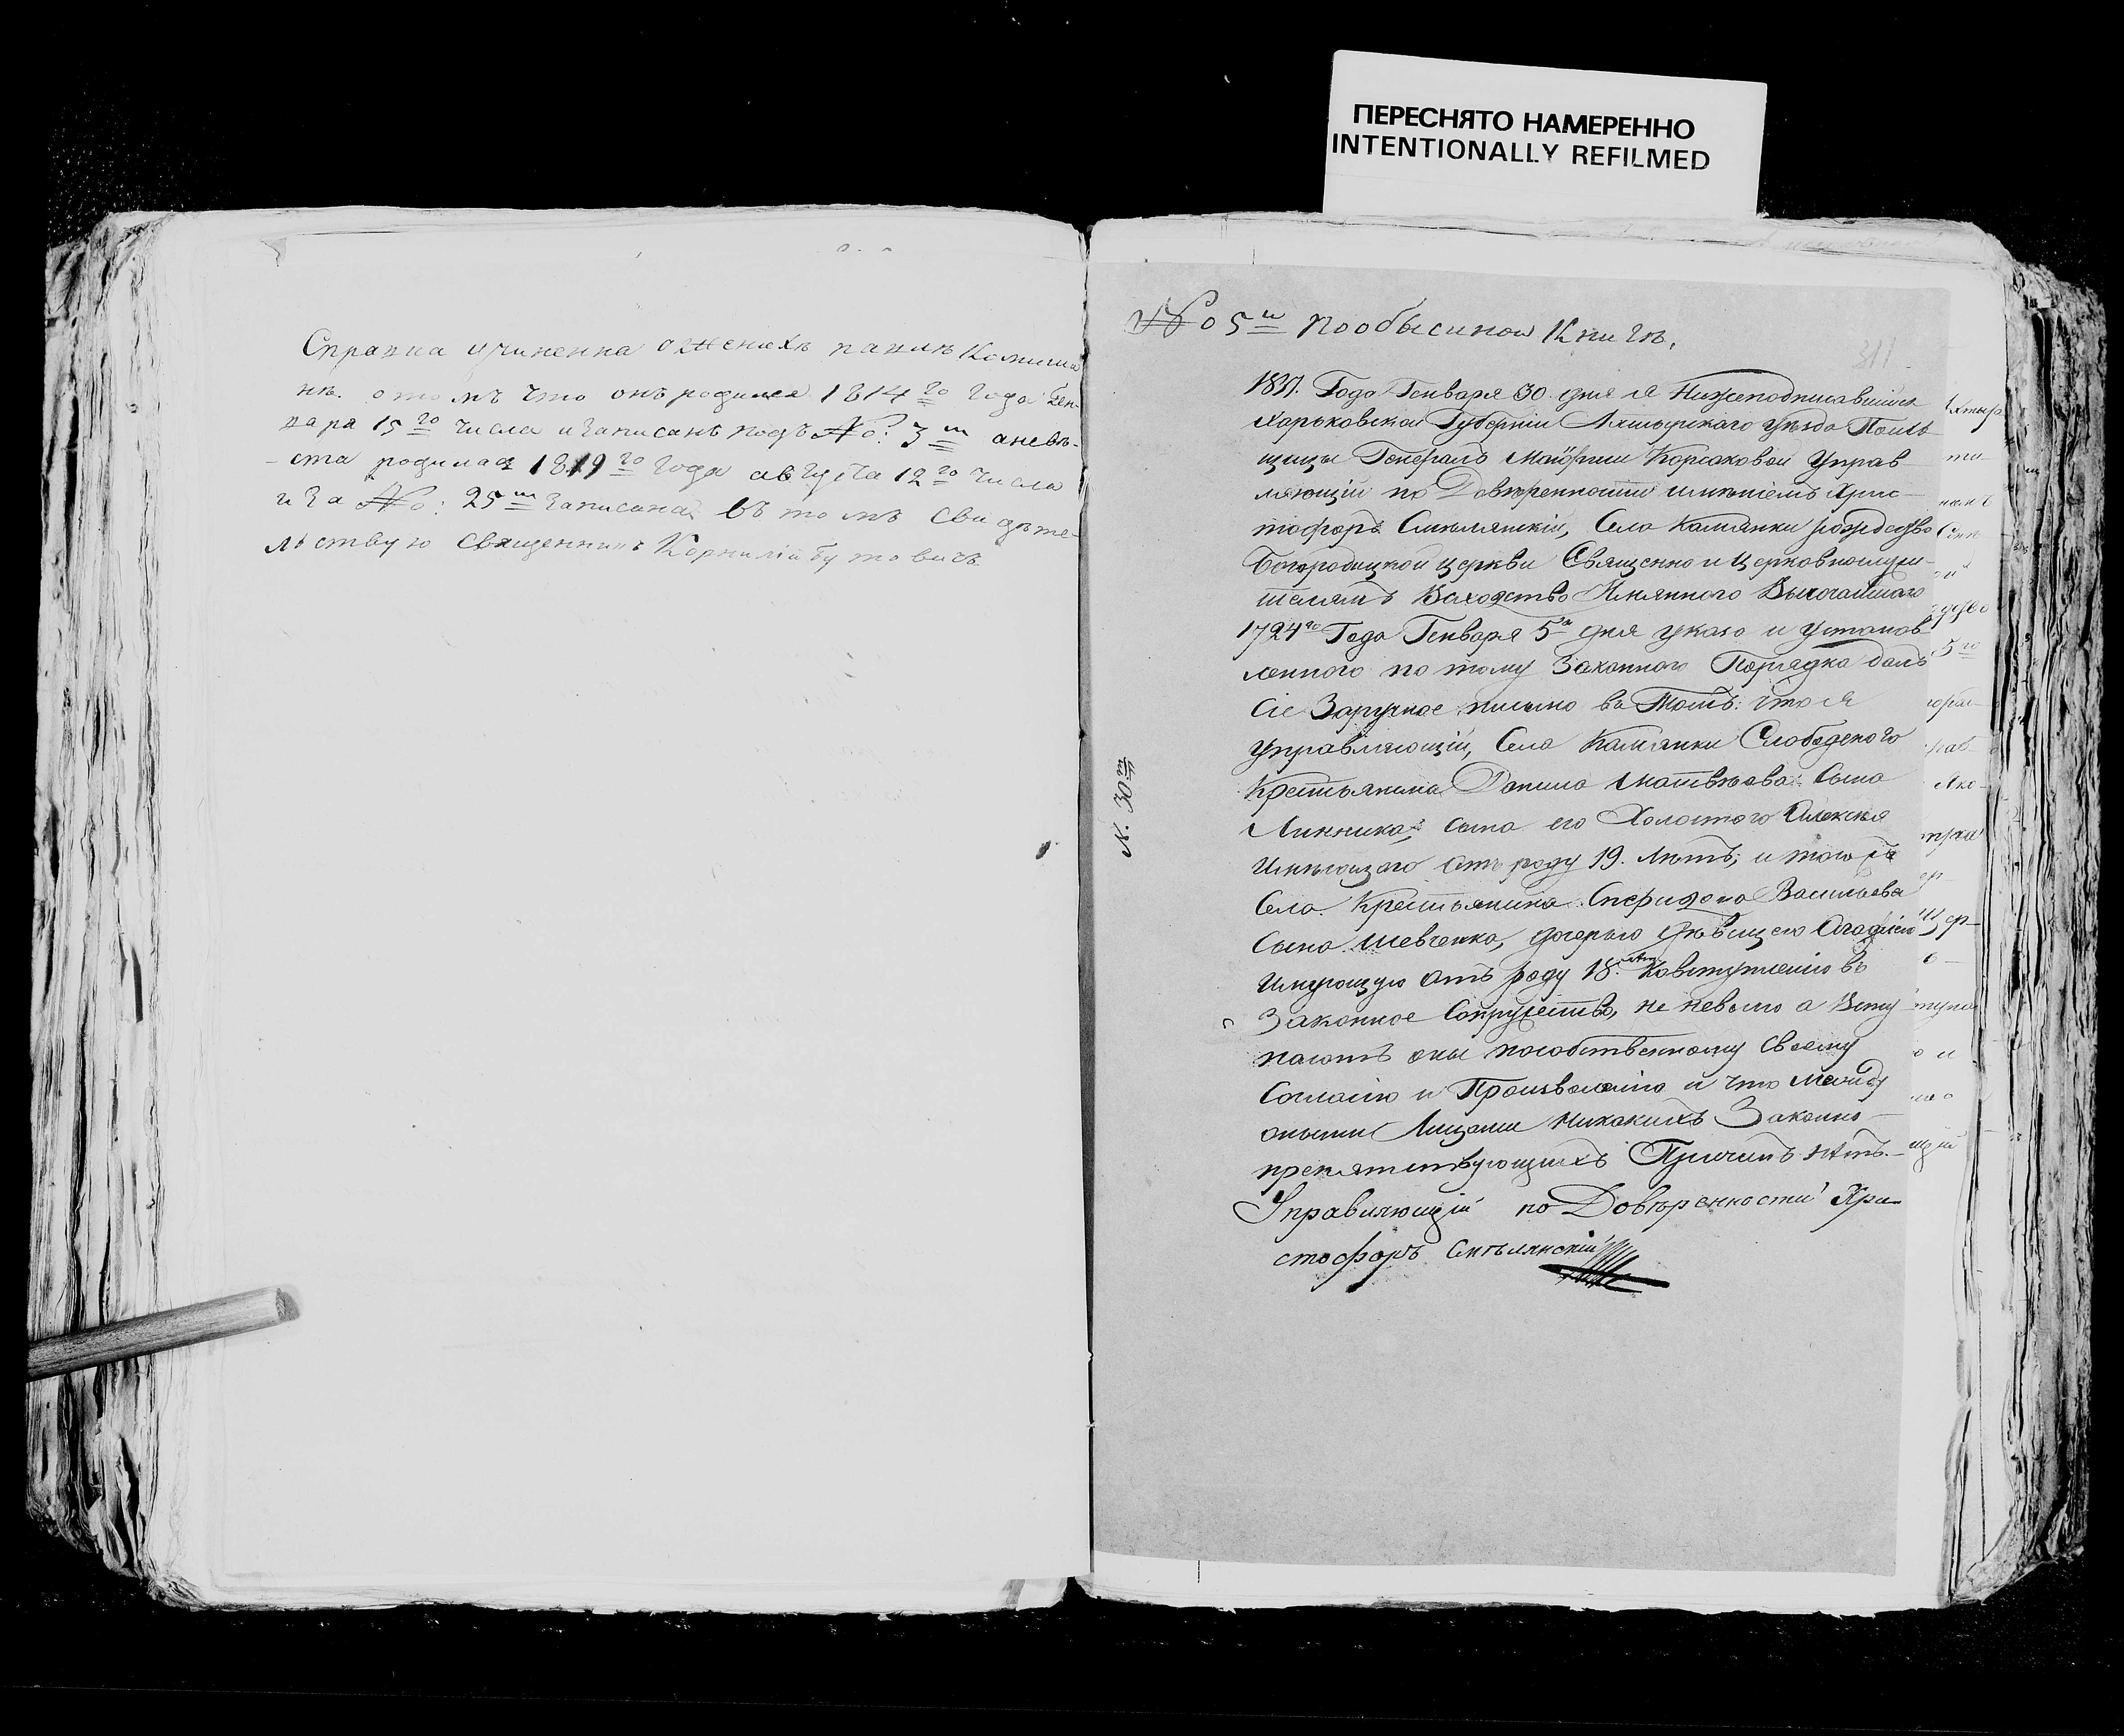 ПЕРЕСНЯТО НАМЕРЕННО
INTENTIONALLY REFILMED
Справка учиненна о женихѣ
нѣ. отомъ что онъ родился 1814го года Ген-
варя 15го числа и записанъ подъ №: 3м аневѣ-
ста родилась 1819го года августа 12го числа
и за №: 25м записана въ томъ свидѣте-
льствую священникъ Корнилій Бутовичъ
№ 5й пообысиной Книгѣ.
311
1837. Года Генваря 30. дня я Нижеподписавшійся
Харьковской Губерніи Ахтырскаго уѣзда Помѣ-
щицы Генералъ Маіорши Корсаковой Управ-
ляющій по Довѣренности имѣніемъ Хрис-
тофоръ Смѣлянскій, Села Камянки рождество
Богородицкой церкви Священно и Церковнослужи-
телямъ Въ сходство Имяннаго Высочайшаго
1724го Года Генваря 5го дня указа и установ-
леннаго по тому Законнаго Порядка далъ
сіе Заручное письмо въ томъ: что я
управляющій, Села Камянки Слободскаго
Крестьянина Данила Матвѣева Сына
Линника, сына его Холостого Алексѣя
Имѣющаго отъ роду 19. лѣтъ, и того жъ
Села Крестьянина Спиридона Васильева
Сына Шевченка, дочерью дѣвицею Агафіею
Имѣющую отъ роду 18. лѣт Ковступленію въ
Законное Сопружество, не неволю а Всту-
паютъ оны пособственному своему
Согласію и Произволенію и что между
оными Лицами Никакихъ Законно
препятствующихъ Причинъ нѣтъ.
Управляющій по Довѣренности Хри-
стофоръ Смѣлянскій
N. 30й